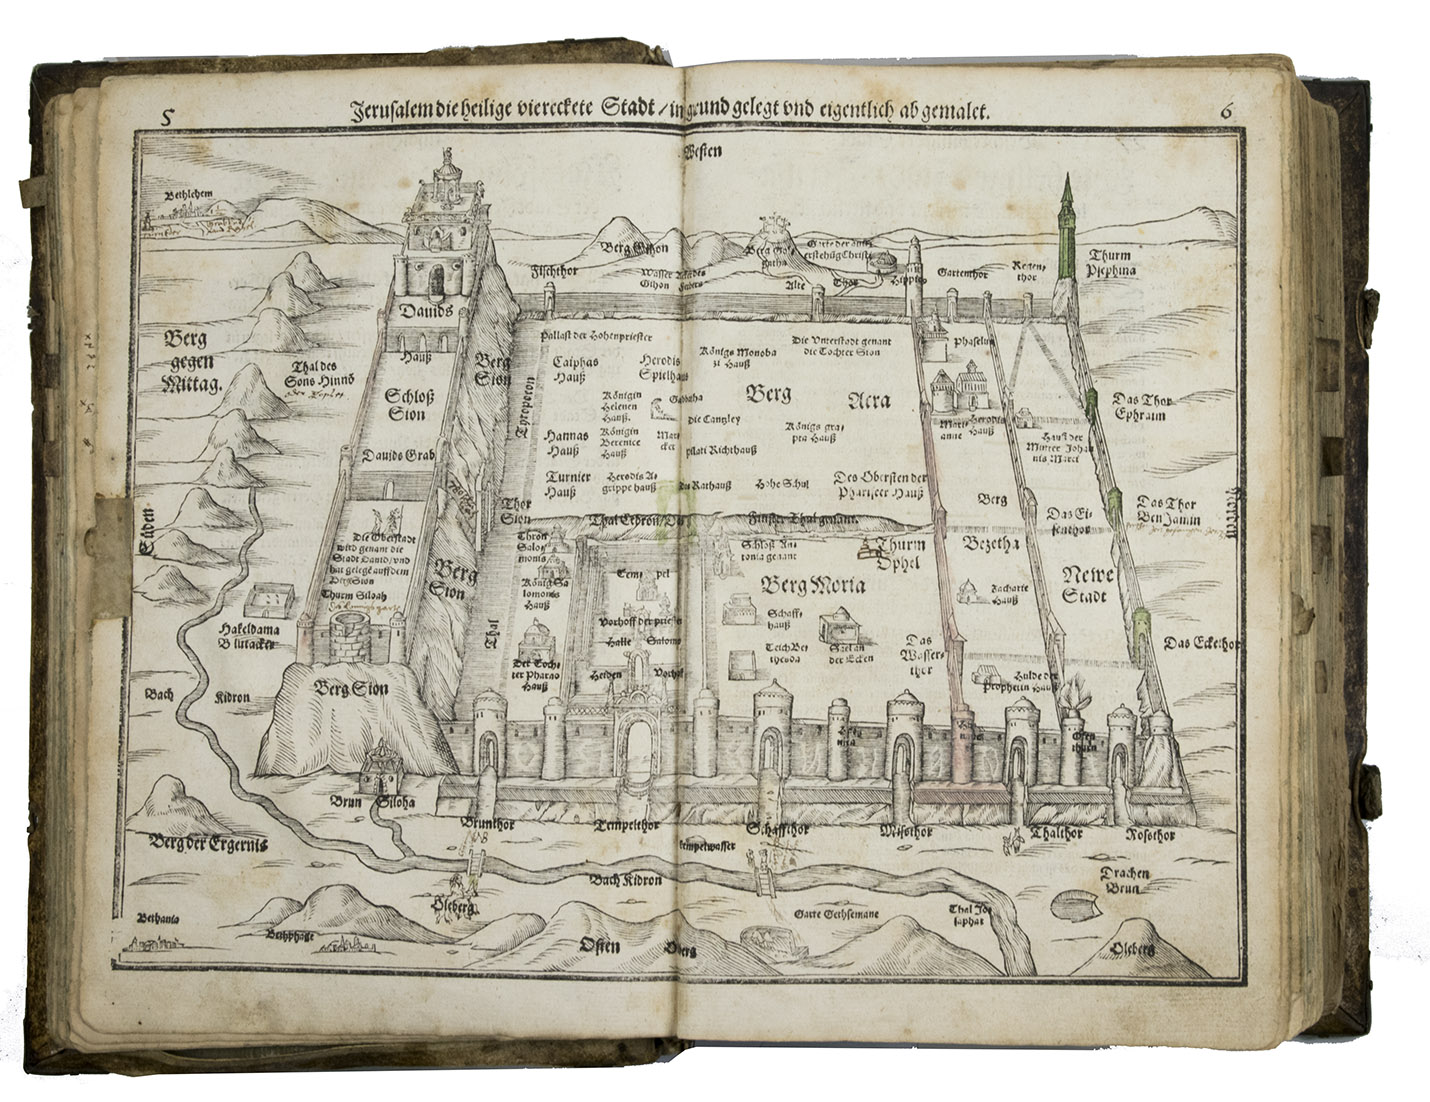 5
Jerusalem die heilige viereckete Stadt / in grund gelegt vnd eigentlich ab gemalet.
6
Westen
Bethlehem
Berg Gihon
Fischthor
Wasser
Gihon
Alte
Thor
Gartenthor
Regen,
thor
Thurm
Psephina
Dauids
Hauß
Berg
gegen
Mittag.
Thal des
Sons Hinnō
Schloß
Sion
Dauids Grab
Berg
Sion
Tyropeion
Pallast der Hohenpriester
Caiphas
Hauß
Herodis
Spielhauß
Königs Monoba
zi Hauß
Die Vnterstadt genant
die Tochter Sion
Phaselus
Königin
Helenen
Hauß.
Gabbatha
Berg
Acra
die Cantzley
Hannas
Hauß
Königin
Berenice
Hauß
Marckt
Pilati Richthauß
Königs Agrippa Hauß
Mariamne
Herodis
Hauß
Hauß der
Mutter Johannis Marci
Das Thor
Ephraim
Turnier
Hauß
Herodis A,
grippe hauß
Das Rathauß
Hohe Schul
Des Obersten der
Phariseer Hauß
Thor
Sion
Thal Cedron / Das
Finster Thal genant.
Berg
Bezetha
Das Ei,
senthor
Das Thor
BenJamin
Norden
Süden
Die Oberstadt
wird genant die
Stadt Dauid / vnd
hat gelegē auff dem
Berg Sion
Thurm Siloah
Berg
Sion
Thron
Salo,
monis
König Sa
lomonis
Hauß
Tempel
Schloß An,
tonia genant
Thurm
Ophel
Berg Moria
Newe
Stadt
Zacharie
Hauß
Schaff,
hauß
Vorhoff der priester
Halle Salomo
Teich Be,
thesda
Saal an
der Ecken
Das
Wasser,
thor
Hulde der
Prophetin Hauß
Das Eckethor
Hakeldama
Blutacker
Thal
Der Toch,
ter Pharao
Hauß
Heiden
Vorhoff
Bach
Kidron
Berg Sion
Brun Siloha
Brunthor
Tempelthor
Schaffthor
Mistthor
Thalthor
Rosthor
Tempelwasser
Berg der Ergernis
Bach Kidron
Drachen
Brun
Ölberg
Garte Gethsemane
Thal Jo,
saphat
Bethania
Bethphage
Osten
Ölberg
Ölberg